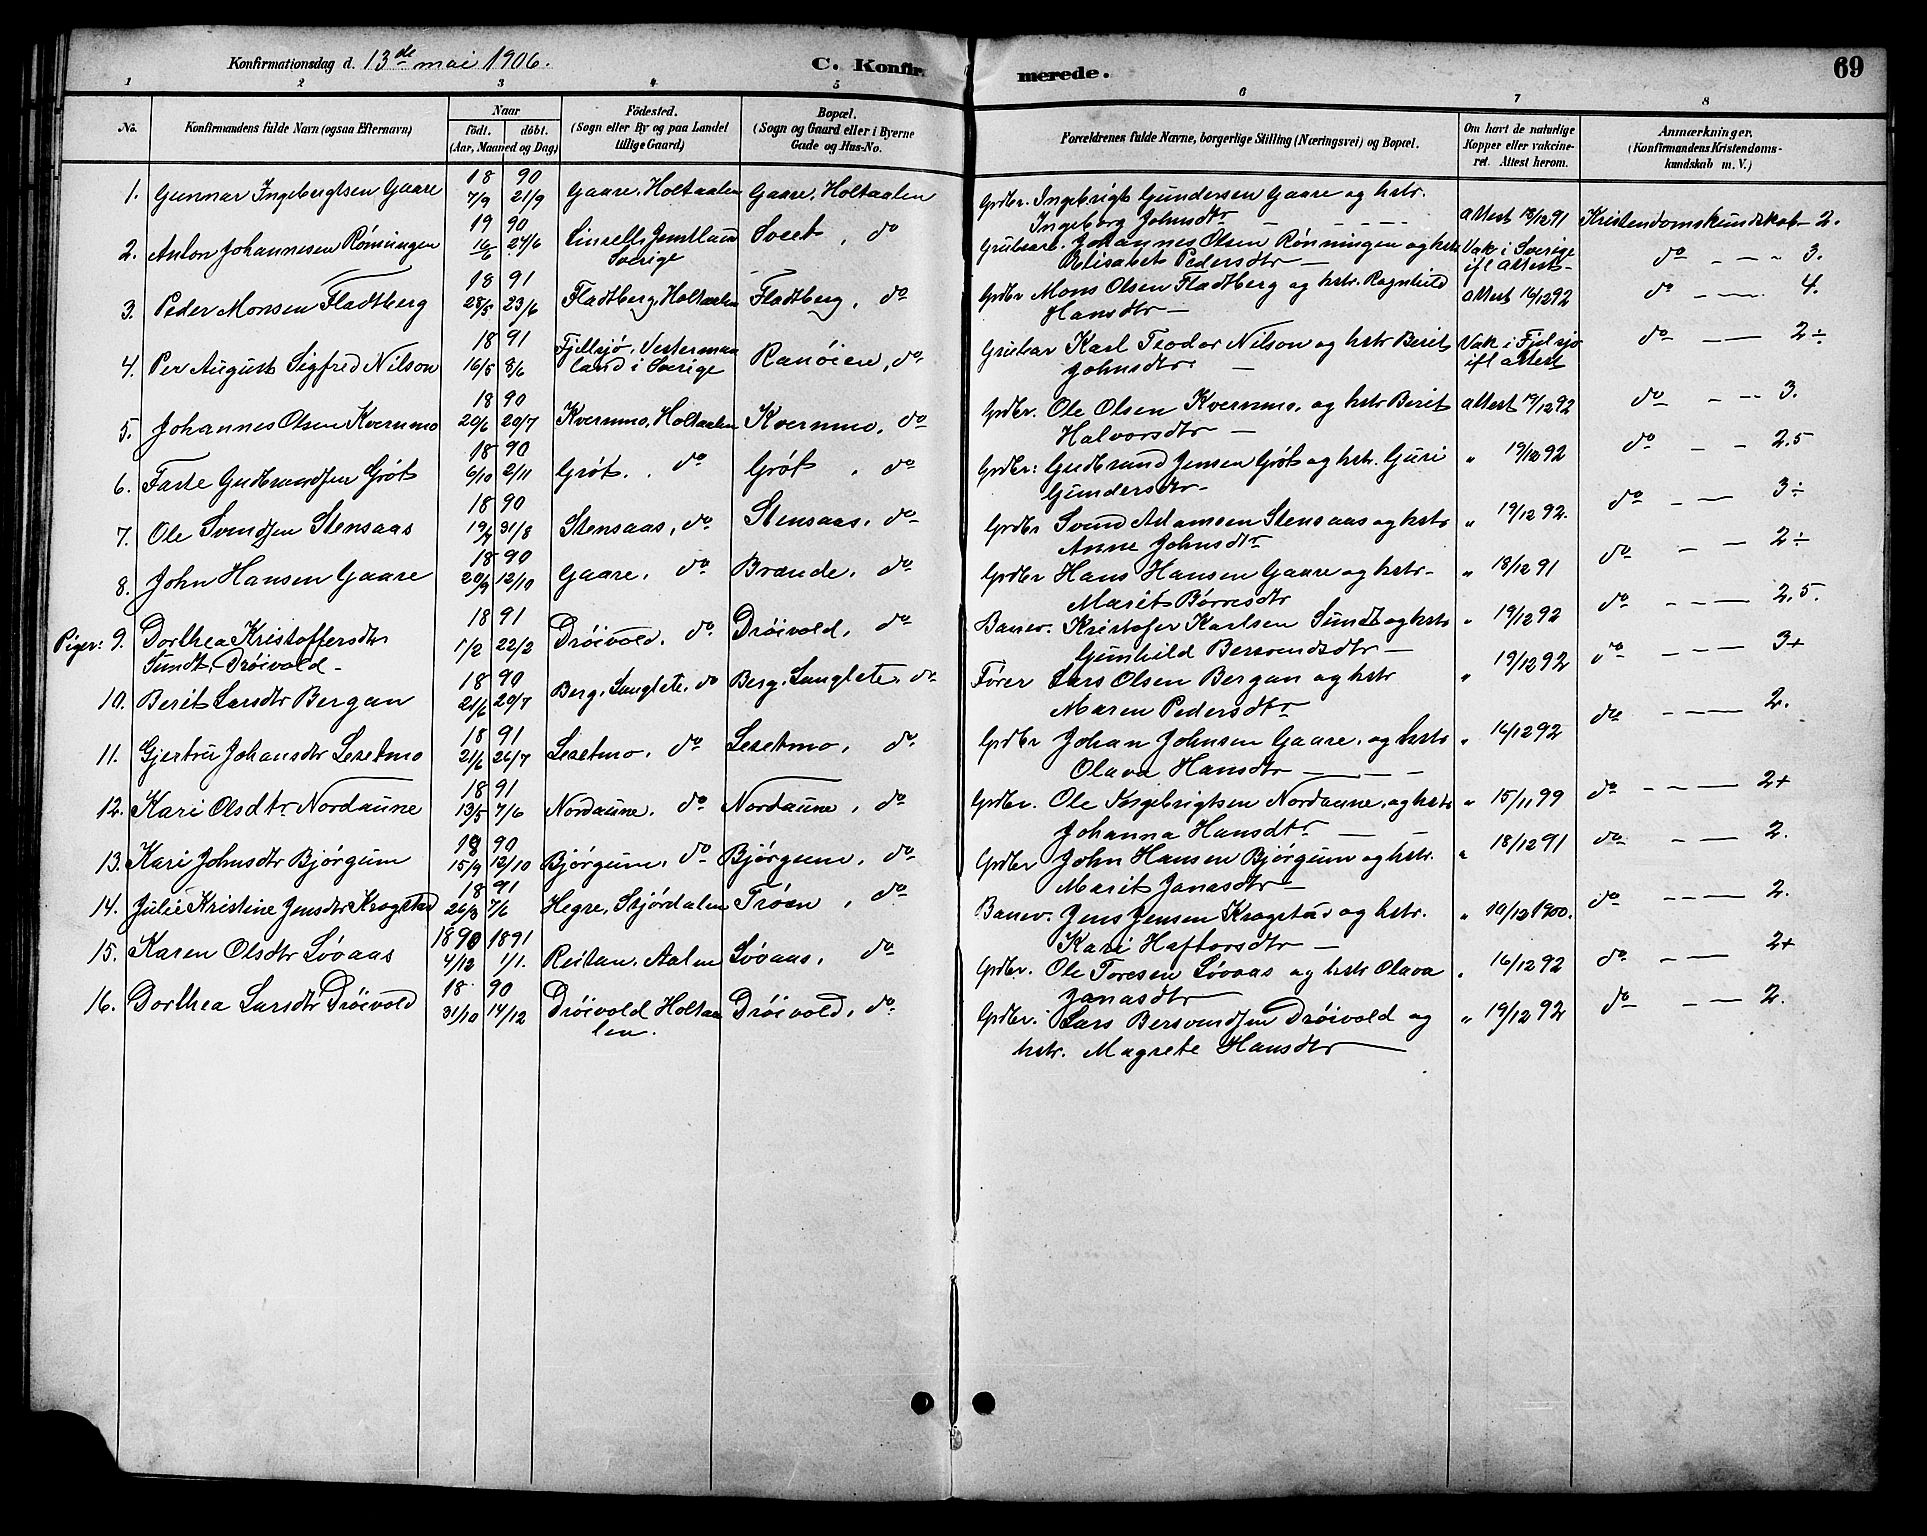 Konfirmationsdag d. 13de mai 1906. C. Konfirmerede. 69
1 2 3 4 5 6 7 8
No. Konfirmandens fulde Navn (ogsaa Efternavn) Naar födt. döbt. (Aar, Maaned og Dag) Födested. (Sogn eller By og paa Landet tillige Gaard) Bopæl. (Sogn og Gaard eller i Byerne Gade og Hus-No. Forældrenes fulde Navne, borgerlige Stilling (Næringsvei) og Bopæl. Om havt de naturlige Kopper eller vakcineret. Attest herom. Anmærkninger. (Konfirmandens Kristendomskundskab m. V.)
1. Gunnar Ingebrigtsen Gaare 18 90 7/9 21/9 Gaare, Holtaalen Gaare, Holtaalen Grdbr. Ingebrigt Gundersen Gaare og hstr. Ingeborg Johnsdtr attest 18/12 91 Kristendomskundskab - 2.
2. Anton Johannesen Rønningen 19 90 16/6 24/6 Linsell, Jemtland Sverige Svect, do Grubearb. Johannes Olsen Rønningen og hstr Elisabet Pedersdtr Vak. i Sverige ifl attest do 3.
3. Peder Monsen Fladtberg 18 91 28/5 23/6 Fladtberg, Holtaalen Fladtberg, do Grdbr Mons Olsen Fladtberg og hstr. Ragnhild Hansdtr attest 16/12 92 do 4.
4. Per August Sigfred Nilson 18 91 16/5 8/6 Fjellsjø, Vestermanland i Sverige Ranøien, do Grubar Karl Teodor Nilson og hstr Berit Johnsdtr Vak. i Fjelsjø ifl attest do 2÷
5. Johannes Olsen Kvernmo 18 90 20/6 20/7 Kvernmo, Holtaalen Kvernmo, do Grdbr. Ole Olsen Kvernmo, og hstr Berit Halvorsdtr attest 19/12 92 do 3.
6. Farte Gudbrandsen Grøt 18 90 6/10 2/11 Grøt, do Grøt, do Grdbr: Gudbrand Jensen Grøt og hstr. Guri Gundersdtr " 19/12 92 do 2.5
7. Ole Svendsen Stensaas 18 90 31/8 Stensaas, do Stensaas, do Grdbr Svend Adamsen Stensaas og hstr Anne Johnsdtr " 19/12 92. do 3÷
8. John Hansen Gaare 18 90 20/9 12/10 Gaare, do Brænde, do Grdbr Hans Hansen Gaare og hstr Marit Børresdtr " 18/12 91 do 2÷
Piger: 9. Dorthea Kristoffersdtr Sundt, Drøivold 18 91 1/2 22/2 Drøivold, do Drøivold, do Banev. Kristofer Karlsen Sundt og hstr Gunhild Bersvendsdtr " 19/12 92 do 2.5.
10. Berit Larsdtr Bergan 18 90 21/6 20/7 Berg, Langlete, do Berg, Langlete, do Fører Lars Olsen Bergan og hstr Maren Pedersdtr " 19/12 92 do 3+
11. Gjertru Johansdtr Lesetmo 18 91 21/6 26/7 Lesetmo, do Lesetmo, do Grdbr Johan Johnsen Gaare, og hstr Olava Hansdtr " 16/12 92 do 2.
12. Kari Olsdtr Nordaune 18 91 13/5 7/6 Nordaune, do Nordaune, do Grdbr. Ole Ingebrigtsen Nordaune, og hstr Johanna Hansdtr " 15/11 99 do 2+
13. Kari Johnsdtr Bjørgum 18 90 15/9 12/10 Bjørgum, do Bjørgum, do Grdbr John Hansen Bjørgum og hstr. Marit Janasdtr " 18/12 91 do 2.
14. Julie Kristine Jensdtr Krogstad 18 91 26/3 7/6 Hegre, Stjørdalen Trøen, do Banev. Jens Jensen Krogstad og hstr. Kari Haftorsdtr " 10/12 1900. do 2.
15. Karen Olsdtr Løvaas 1890 1891 4/12 1/1. Reitan, Aalen Løvaas, do Grdbr. Ole Toresen Løvaas og hstr Olava Janasdtr " 16/12 92 do 2+
16. Dorthea Larsdtr Drøivold 18 90 31/10 14/12 Drøivold Holtaalen. Drøivold, do Grdbr. Lars Bersvendsen Drøivold og hstr. Magrete Hansdtr " 19/12 92 do 2.